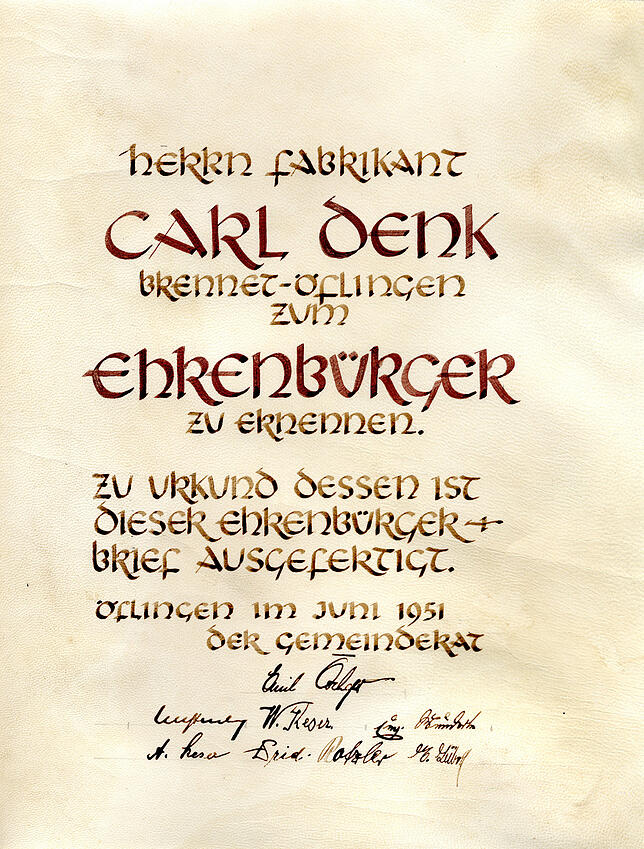 HERRN FABRIKANT
CARL DENK
BRENNET-ÖFLINGEN
ZUM
EHRENBÜRGER
ZU ERNENNEN.
ZU URKUND DESSEN IST
DIESER EHRENBÜRGER-
BRIEF AUSGEFERTIGT.
ÖFLINGEN IM JUNI 1951
DER GEMEINDERAT
Emil
W. Keser
A. Frid. Rotzler